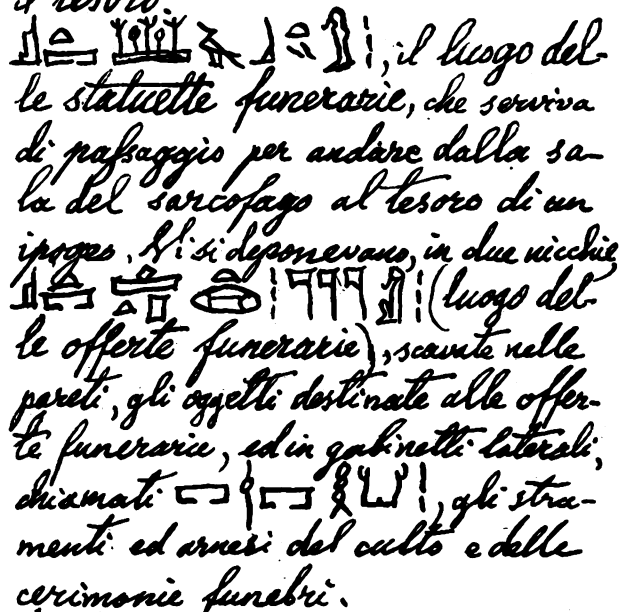 il tesoro.
, il luogo del-
le statuette funerarie, che serviva
di passaggio per andare dalla sa-
la del sarcofago al tesoro di un
ipogeo. Vi si deponevano, in due nicchie,
(luogo del-
le offerte funerarie), scavate nelle
pareti, gli oggetti destinati alle offer-
te funerarie, ed in gabinetti laterali,
chiamati , gli stru-
menti ed arnesi del culto e delle
cerimonie funebri.